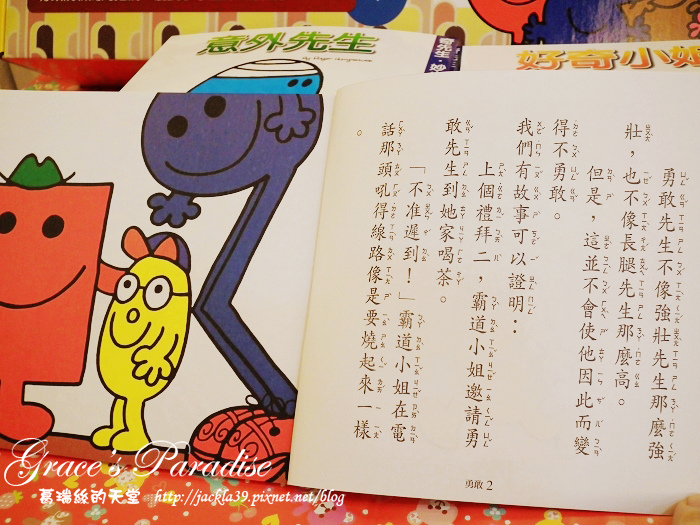 意外先生
By Roger Hargreaves
奇先生・妙
好奇小姐
勇敢先生不像強壯先生那麼強
壯，也不像長腿先生那麼高。
但是，這並不會使他因此而變
得不勇敢。
我們有故事可以證明：
上個禮拜二，霸道小姐邀請勇
敢先生到她家喝茶。
「不准遲到！」霸道小姐在電
話那頭吼得線路像是要燒起來一樣
。
勇敢 2
Grace's Paradise
葛瑞絲的天堂 http://jackla39.pixnet.net/blog